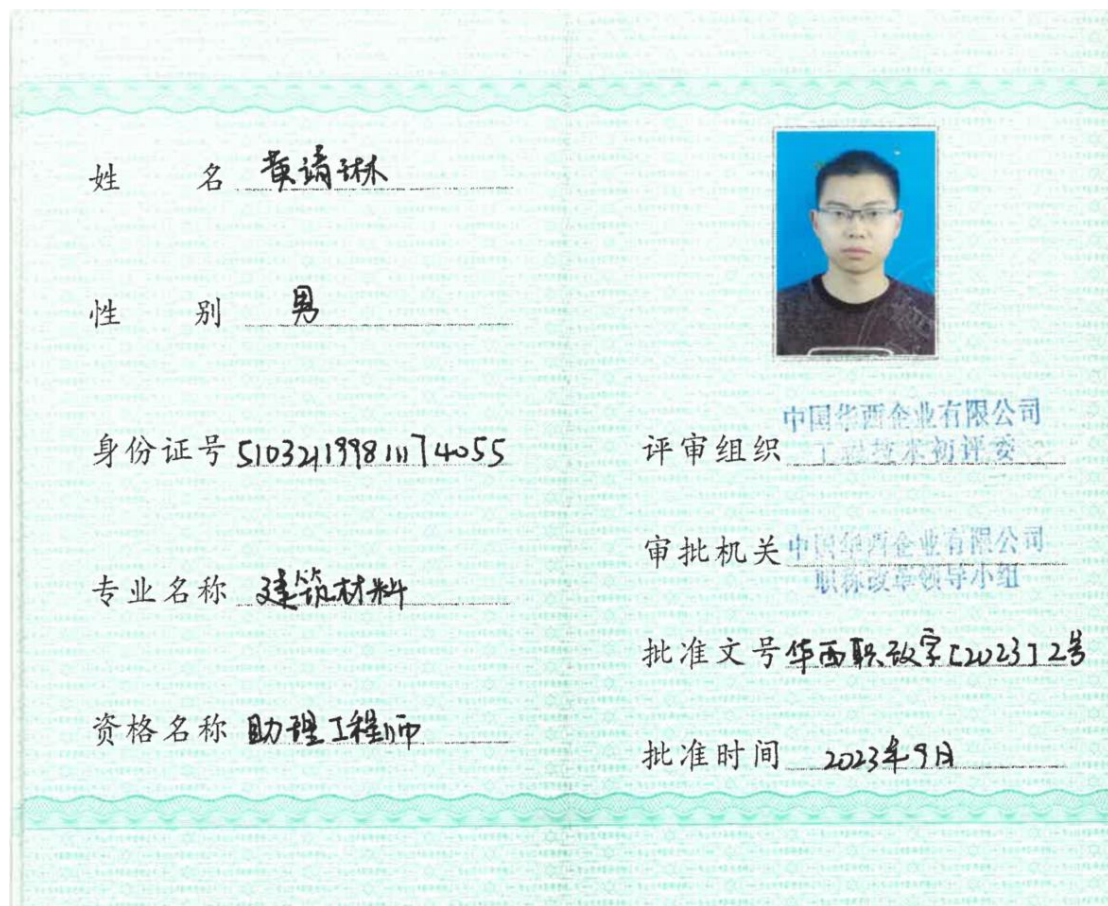 姓 名 黄靖琳
性 别 男
身份证号 510321199811174055
专业名称 建筑材料
资格名称 助理工程师
评审组织 中国华西企业有限公司
工程技术初评委
审批机关 中国华西企业有限公司
职称改革领导小组
批准文号 华西职改字[2023]2号
批准时间 2023年9月